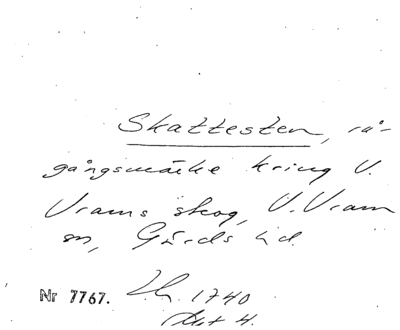 Skattesten, rå-
gångsmärke kring V.
Vrams skog, V. Vram
sn, Gärds hd.
Nr 7767. Lh. 1740
Akt 4.